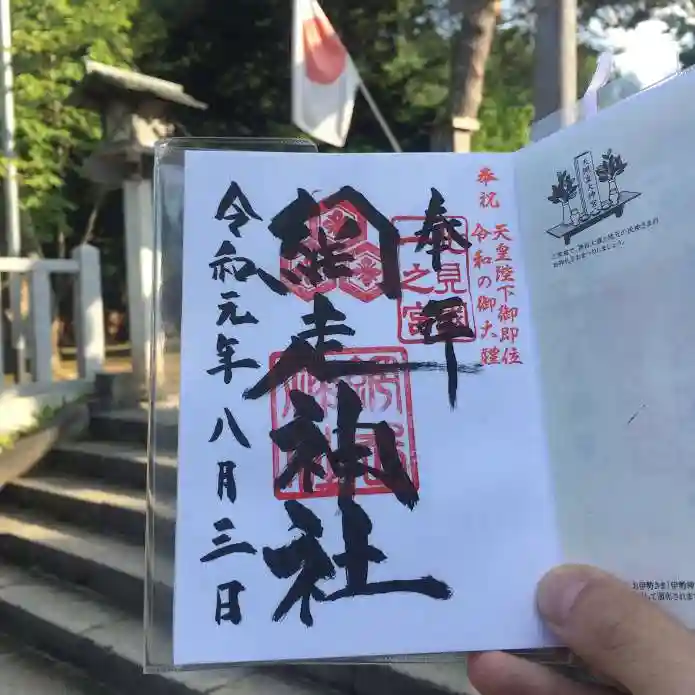 奉祝
天皇陛下御即位
令和の御大禮
奉拝
北見國
一之宮
網走神社
令和元年八月三日